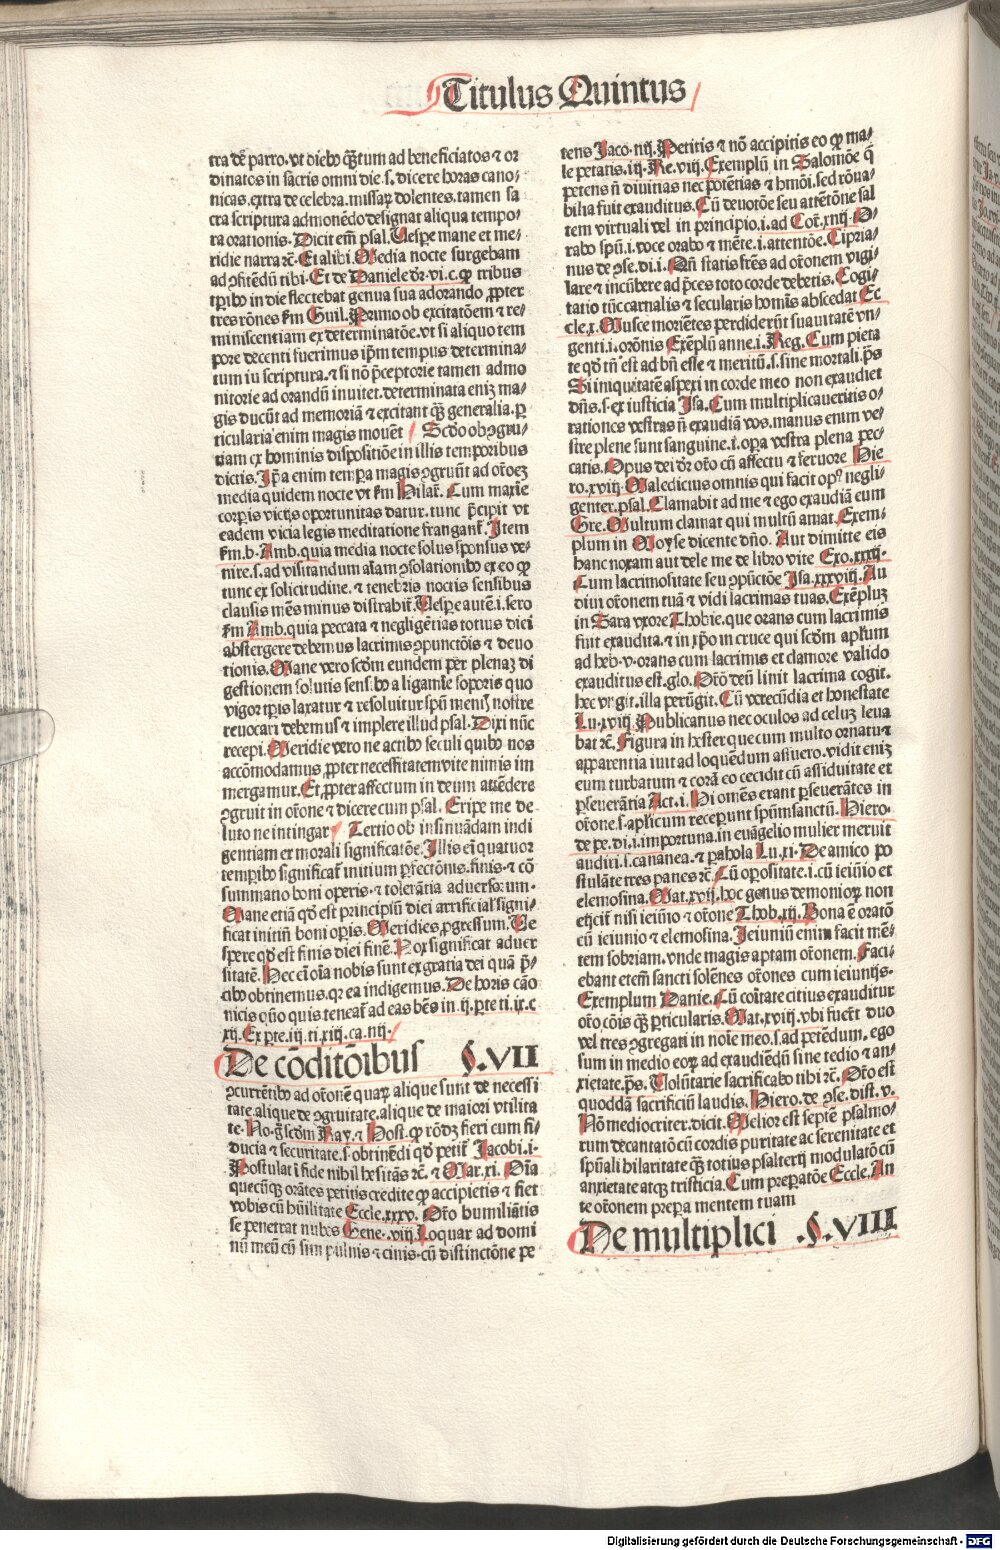 Titulus Quintus
tra de parro. vt dieb⁹ q̄ʒtum ad beneficiatos ⁊ or
dinatos in sacris omni die. s. dicere horas cano⸗
nicas. extra de celebra. missaꝝ dolentes. tamen sa
cra scriptura admonēdo designat aliqua tempo⸗
ra orationis. Dicit em̄ psal. Uespe mane et me⸗
ridie narra ⁊c̄. Et alibi. Media nocte surgebam
ad ꝯfitēdū tibi. Et de Daniele dr̄. vi. c. ꝙ tribus
tp̄ib⁹ in die flectebat genua sua adorando ꝓpter
tres rōnes fm Guil. Primo ob excitatōem ⁊ re⸗
miniscentiam ex determinatōe. vt si aliquo tem
pore decenti fuerimus ip̄m tempus determina⸗
tum in scriptura. ⁊ si nō p̄ceptorie tamen admo
nitorie ad orandū inuitet. determinata eniʒ ma⸗
gis ducūt ad memoriā ⁊ excitant q̄ʒ generalia. ꝑ
ticularia enim magis mouēt Scd̄o ob ꝯgru⸗
tiam ex hominis dispositiōe in illis temporibus
dictis. Ip̄a enim tempa magis ꝯgruūt ad or̄oeʒ
media quidem nocte vt fm Hilar̄. Cum maxīe
corpis victis oportunitas datur. tunc p̄cipit vt
eadem vicia legis meditatione frangant̄. Item
fm. b. Amb. quia media nocte solus sponsus ve⸗
nire. s. ad visitandum alam ꝯsolationib⁹ ex eo ꝙ
tunc ex solicitudine. ⁊ tenebris noctis sensibus
clausis mēs minus distrabit̄. Uespe autē. i. sero
fm Amb. quia peccata ⁊ negligētias totius diei
abstergere debemus lacrimis ꝯpunctōis ⁊ deuo
tionis. Mane vero scd̄m eundem per plenaʒ di
gestionem solutis sensib⁹ a ligamīe soporis quo
vigor tp̄is laxatur ⁊ resoluitur spū menti⁹ nostre
reuocari debemus ⁊ implere illud psal. Dixi nūc
recepi. Meridie vero ne actib⁹ seculi quib⁹ nos
accōmodamus ꝓpter necessitatem vite nimis im
mergamur. Et ꝓpter affectum in deum attēdere
ꝯgruit in or̄one ⁊ dicere cum psal. Eripe me de
luto ne infingar Tertio ob insinuādam indi
gentiam ex morali significatōe. Illis em̄ quatuor
temp̄ib⁹ significat̄ initium pfectōnis. finis. ⁊ cō
summatio boni operis. ⁊ tolerātia aduersoꝝ um.
Mane etiā qd̄ est principiū diei artificial' signi⸗
ficat initiū boni opis. Meridies. ꝓgressum. Ue
spere qd̄ est finis diei finē. Nox significat aduer
sitatē. Hec em̄ oīa nobis sunt ex gratia dei quā p̄⸗
cib⁹ obtinemus. qꝛ ea indigemus. De horis cāo
nicis qn̄o quis teneat̄ ad eas hēs in. ij. parte ti. ix. c
xij. Ex parte. iij. ti. xiij. ca. iiij.
De cōditōibus §. VII
ꝯcurrētib⁹ ad or̄onē quaꝝ alique sunt de necessi
tate. alique de ꝯgruitate. alique de maiori vtilita
te. No. ḡ scd̄m Ray. ⁊ Host. ꝙ rōdʒ fieri cum fi⸗
ducia ⁊ securitate. s. obtinēdi qd̄ petit̄ Jacobi. i.
Postulat ī fide nihil hesitās ⁊c̄. ⁊ Mar. xi. Oīa
quecūqʒ orātes petitis credite ꝙ accipietis ⁊ fiet
vobis cū hūilitate Eccle. xxxv. Or̄o humiliātis
se penetrat nubes Gene. viij. Loquar ad domi
nū meū cū sim puluis ⁊ cinis. cū distinctōne pe
tens Jaco. iiij. Petitis ⁊ nō accipitis eo ꝙ ma⸗
le petatis. iij. Re. viij. Exemplū in Salomōe q̄
petens n̄ diuitias nec potētias ⁊ hmōi. sed rōna⸗
bilia fuit exauditus. Cū deuotōe seu attētōne sal
tem virtuali vel in principio. i. ad Cor̄. xiiij. O⸗
rabo spū. i. voce orabo ⁊ mēte. i. attentōe. Cipria⸗
nus de ꝯse. di. i. Qn̄ statis fr̄es ad or̄onem vigi⸗
lare ⁊ incūbere ad p̄ces toto corde debetis. Cogi⸗
tatio tūc carnalis ⁊ secularis homīs abscedat Ec
cle. x. Musce moriētes perdiderūt suauitatē vn⸗
genti. i. orōnis Exēplū anne. i. Reg. Cum pieta
te qd̄ tn̄ est ad bn̄ esse ⁊ meritū. s. sine mortali. ps̄
Si iniquitatē aspexi in corde meo non exaudiet
dn̄s. s. ex iusticia Isa. Cum multiplicaueritis o⸗
rationes vestras n̄ exaudiā vos. manus enim ve⸗
stre plene sunt sanguine. i. opa vestra plena pec⸗
catis. Opus dei dr̄ or̄o cū affectu ⁊ feruore Hie
ro. xviij. Maledictus omnis qui facit op⁹ negli⸗
genter. psal. Clamabit ad me ⁊ ego exaudiā eum
Gre. Multum clamat qui multū amat. Exem⸗
plum in Moyse dicente dn̄o. Aut dimitte eis
hanc noxam aut dele me de libro vite Exo. xxxij.
Cum lacrimositate seu ꝯpūctōe Isa. xxxviij. Au
diui or̄onem tuā ⁊ vidi lacrimas tuas. Exēpluʒ
in Sara vxore Thobie. que orans cum lacrimis
fuit exaudita. ⁊ in xp̄o in cruce qui scd̄m apl̄um
ad heb. v. orans cum lacrimis et clamore valido
exauditus est. glo. Or̄o deū linit lacrima cogit.
hec vngit. illa perūgit. Cū verecūdia et honestate
Lu. xviij. Publicanus nec oculos ad celuʒ leua
bat ⁊c̄. Figura in hester que cum multo ornatu ⁊
apparentia iuit ad loquēdum assuero. vidit eniʒ
eum turbatum ⁊ corā eo cecidit cū assiduitate et
pseuerātia Act. i. Hi omēs erant pseuerātes in
or̄one. s. apl̄i cum receperunt spūmsanctū. Hiero.
de pe. di. i. importuna. in euāgelio mulier meruit
audiri. s. cananea. ⁊ pabola Lu. xi. De amico po
stulāte tres panes ⁊c̄. Cū opositate. i. cū ieiūio et
elemosina. Mat. xvij. hoc genus demonioꝝ non
eijcit̄ nisi ieiūio ⁊ or̄one Thob. xij. Bona ē oratō
cū ieiunio ⁊ elemosina. Ieiuniū enim facit mē⸗
tem sobriam. vnde magis aptam or̄onem. Faci⸗
ebant etem̄ sancti solēnes or̄ones cum ieiunijs.
Exemplum Danie. Cū cōitate citius exauditur
or̄o cōis q̄ʒ pticularis. Mat. xviij. vbi fuer̄t duo
vel tres ꝯgregati in noīe meo. s. ad petēdum. ego
sum in medio eoꝝ ad exaudiēdū sine tedio ⁊ an⸗
xietate. ps̄. Uolūtarie sacrificabo tibi ⁊c̄. Or̄o est
quoddā sacrificiū laudis. Hiero. de ꝯse. dist. v.
Nō mediocriter. dicit. Melior est septē psalmo⸗
rum decantatō cū cordis puritate ac serenitate et
spūali hilaritate q̄ʒ totius psalterij modulatō cū
anxietate atqʒ tristicia. Cum preparatōe Eccle. An
te or̄onem prepa mentem tuam
De multiplici .§. VIII
Digitalisierung gefördert durch die Deutsche Forschungsgemeinschaft - DFG